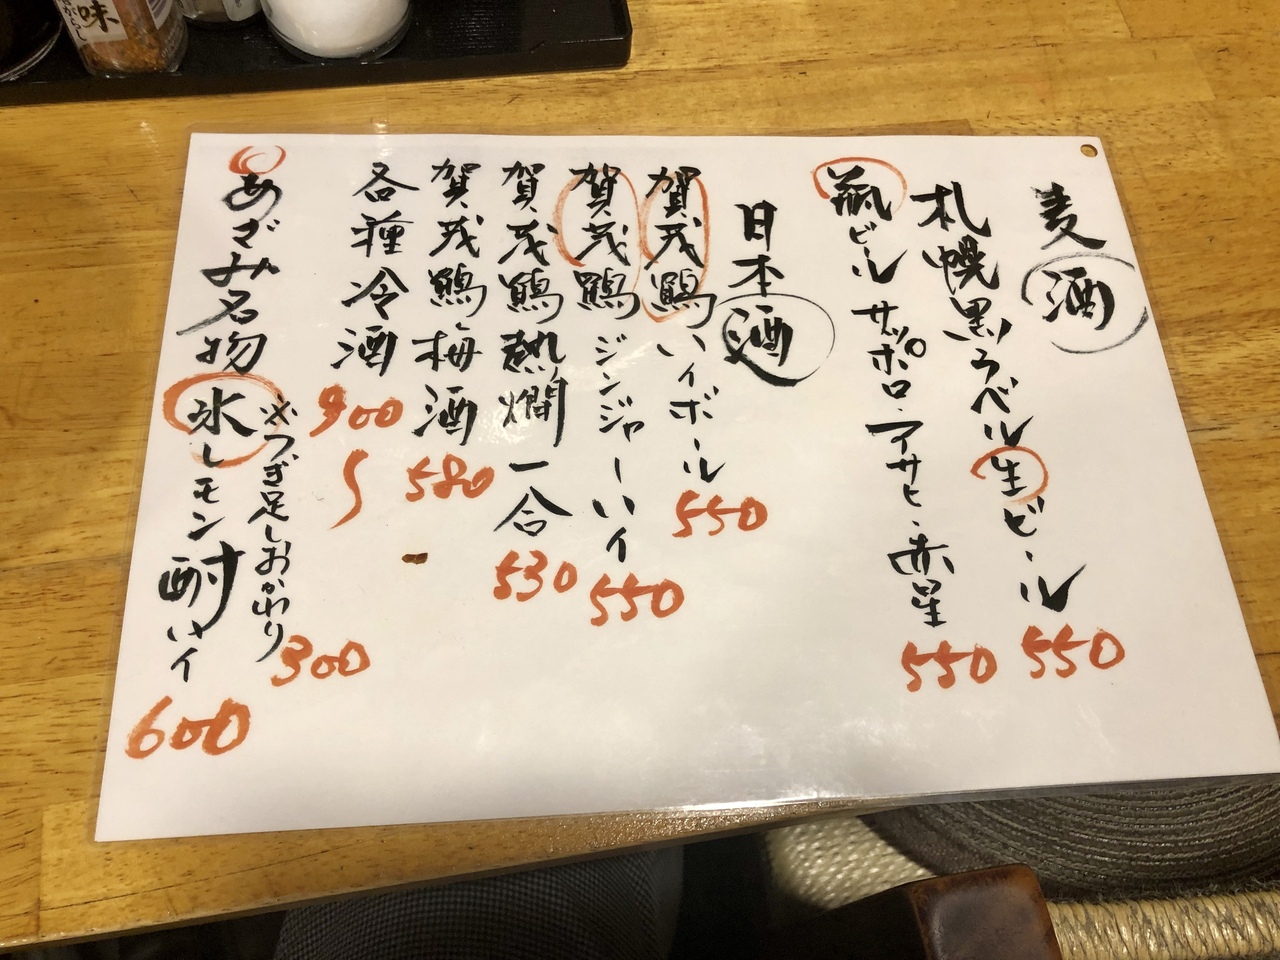 麦酒
札幌黒ラベル生ビール 550
瓶ビール サッポロ・アサヒ・赤星 550
日本酒
賀茂鶴ハイボール 550
賀茂鶴ジンジャーハイ 550
賀茂鶴熱燗一合 530
賀茂鶴梅酒 580
各種冷酒 900〜
あざみ名物氷レモン酎ハイ 600
※つぎ足しおかわり 300
味
がらし